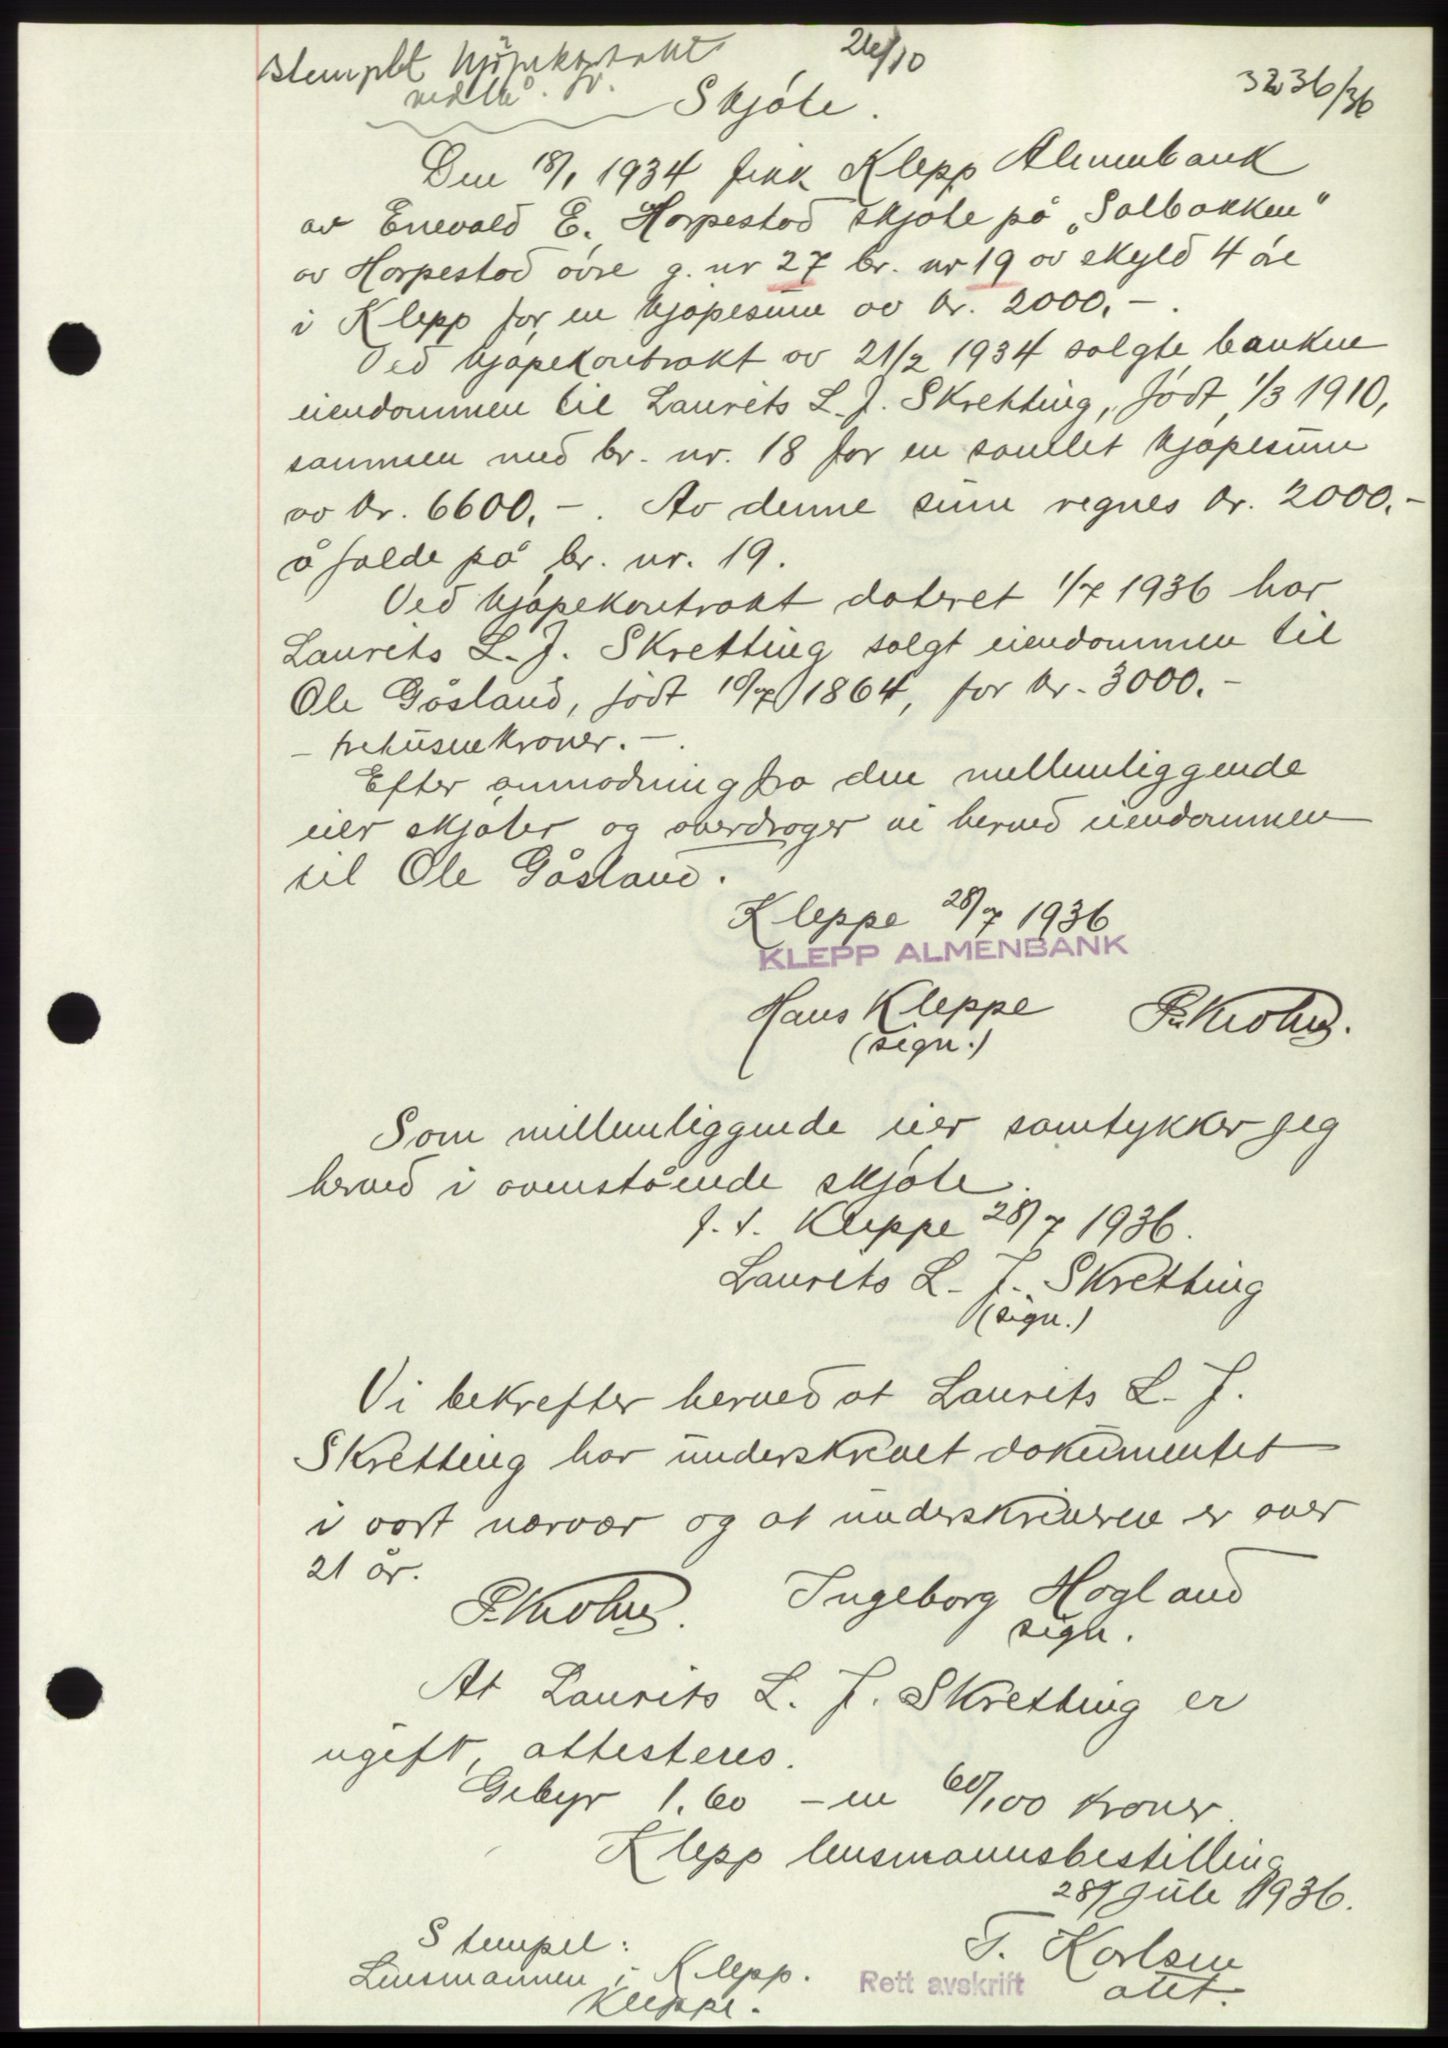 Stemplet kjøpekontrakt
vedlå. fv.
26/10
3236/36
Skjøte.
Den 18/1 1934 fikk Klepp Almenbank
av Enevald E. Horpestad skjøte på „Solbakken"
av Horpestad øvre g. nr 27 br. nr 19 av skyld 4 øre
i Klepp for en kjøpesum av kr. 2000,-.
Ved kjøpekontrakt av 21/2 1934 solgte banken
eiendommen til Laurits L. J. Skretting, født 1/3 1910,
sammen med br. nr. 18 for en samlet kjøpesum
av kr. 6600,-. Av denne sum regnes kr. 2000,-
å falde på br. nr. 19.
Ved kjøpekontrakt dateret 1/7 1936 har
Laurits L. J. Skretting solgt eiendommen til
Ole Gåsland, født 10/7 1864, for kr. 3000.-
- tretusenkroner.-.
Efter anmodning fra den mellemliggende
eier skjøter og overdrager vi herved eiendommen
til Ole Gåsland.
Kleppe 28/7 1936
KLEPP ALMENBANK
Hans Kleppe P. Krohn.
(sign.)
Som mellemliggende eier samtykker jeg
herved i ovenstående skjøte.
p. t. Kleppe 28/7 1936.
Laurits L. J. Skretting
(sign.)
Vi bekrefter herved at Laurits L. J.
Skretting har underskrevet dokumentet
i vort nærvær og at underskriveren er over
21 år.
P. Krohn. Ingeborg Hogland
sign.
At Laurits L. J. Skretting er
ugift, attesteres.
Gebyr 1.60 - en 60/100 kroner.
Klepp lensmannsbestilling
28/ juli 1936.
Stempel: T. Karlsen
Lensmannen i Klepp. Rett avskrift att.
Kleppe.